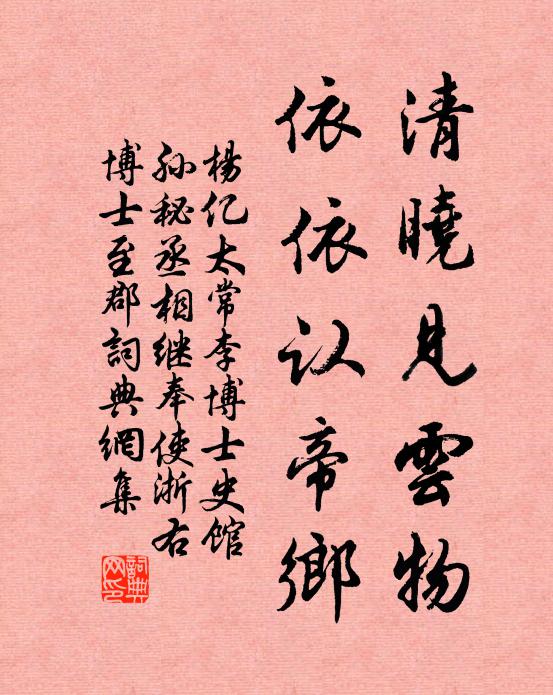 清曉見雲物
依依认帝鄉
楊亿太常李博士史馆
孙秘丞相继奉使浙右
博士至郡詞典網集
詞典网印